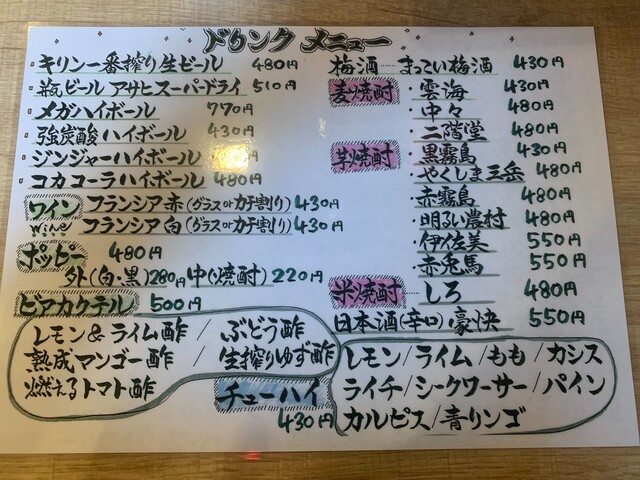 ドリンク メニュー
キリン一番搾り生ビール 480円
瓶ビール アサヒスーパードライ 510円
メガハイボール 770円
強炭酸ハイボール 430円
ジンジャーハイボール 円
コカコーラハイボール 480円
ワイン フランシア 赤(グラスorカチ割り) 430円
Wine フランシア 白(グラスorカチ割り) 430円
ホッピー 480円
外(白・黒)280円 中(焼酎) 220円
ビアカクテル 500円
レモン&ライム酢 / ぶどう酢
熟成マンゴー酢 / 生搾りゆず酢
燃えるトマト酢
チューハイ
430円
梅酒 まっこい梅酒 430円
麦焼酎 ・雲海 430円
・中々 480円
・二階堂 480円
芋焼酎 ・黒霧島 430円
・やくしま三岳 480円
・赤霧島 480円
・明るい農村 480円
・伊佐美 550円
・赤兎馬 550円
米焼酎 ・しろ 480円
日本酒(辛口) 豪快 550円
レモン/ライム/もも/カシス
ライチ/シークワーサー/パイン
カルピス/青リンゴ